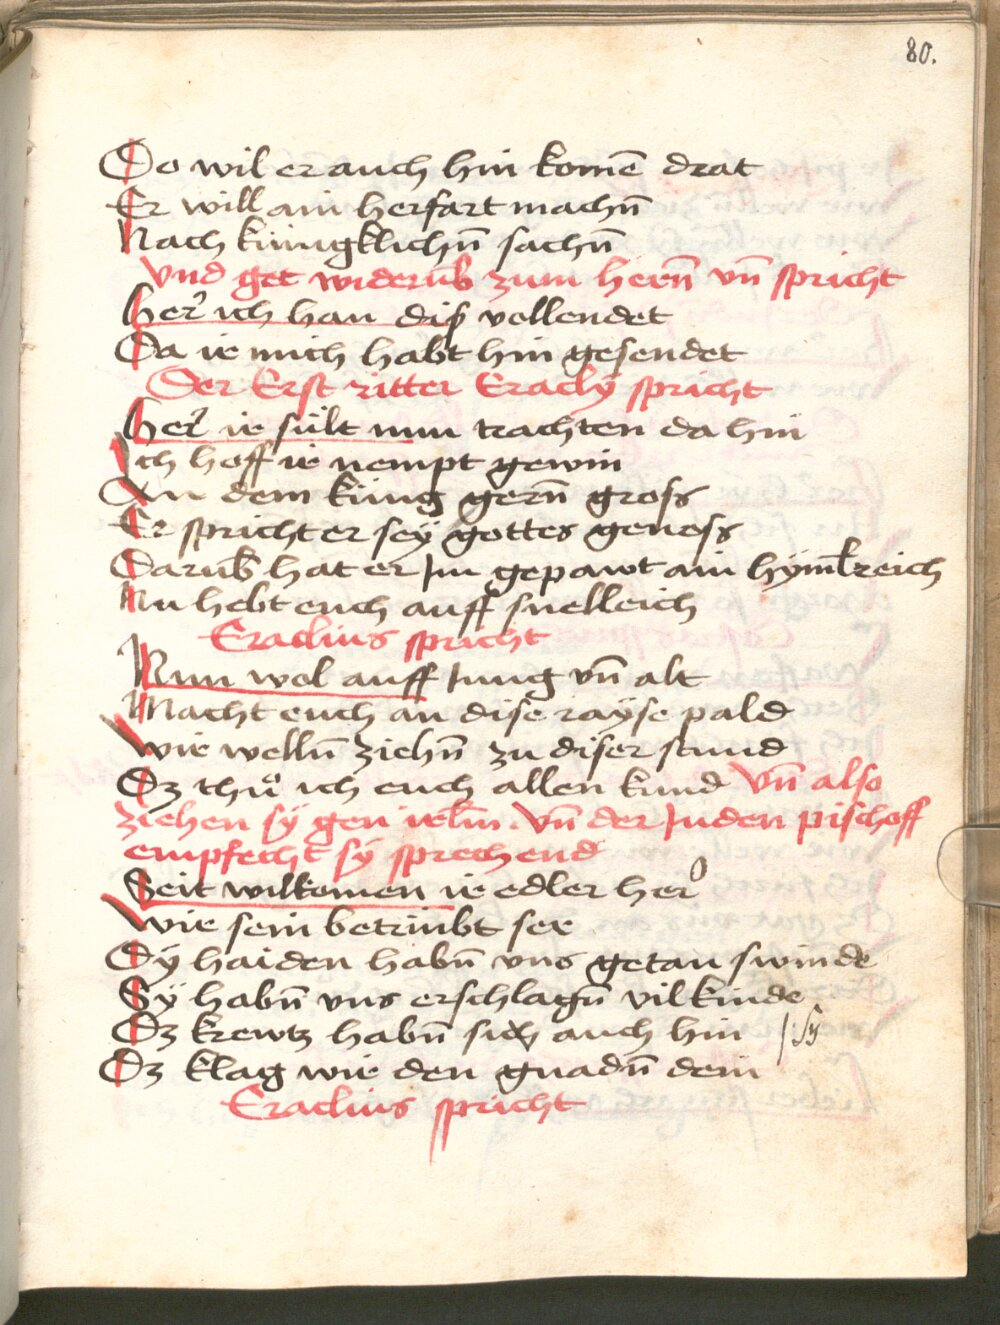 80.
Do wil er auch hin komē drat
Er will ain herfart machn̄
Nach künigklichn̄ sachn̄
vnd get widerūb zum hern̄ vn̄ spricht
her ich han diß vollendet
Da ir mich habt hin gesendet
Der Erst ritter Eracly spricht
her ir sült nun trachten da hin
Ich hoff ir nempt gewin
An dem küng gern̄ gross
Er spricht er sey gottes genoss
Darūb hat er Im gepawt ain hÿml̄reich
Nu hebt euch auff snelleich
Eraclius spricht
Nun wol auff Jung vn̄ alt
Macht euch an dise raÿse pald
wir welln̄ ziehn̄ zu diser stund
Dz thů ich euch allen kund vn̄ also
ziehen sÿ gen irl̄m. vn̄ der Juden pischoff
empfecht sÿ sprechend
Seit wilkomen ir edler her
wir sein betrübt ser
Dÿ haiden habn̄ vns getan swinde
Sÿ habn̄ vns erschlagn̄ vil kinde
Dz krewtz habn̄ sich auch hin | sy
Dz klag wir den gnadn̄ dein
Eraclius spricht